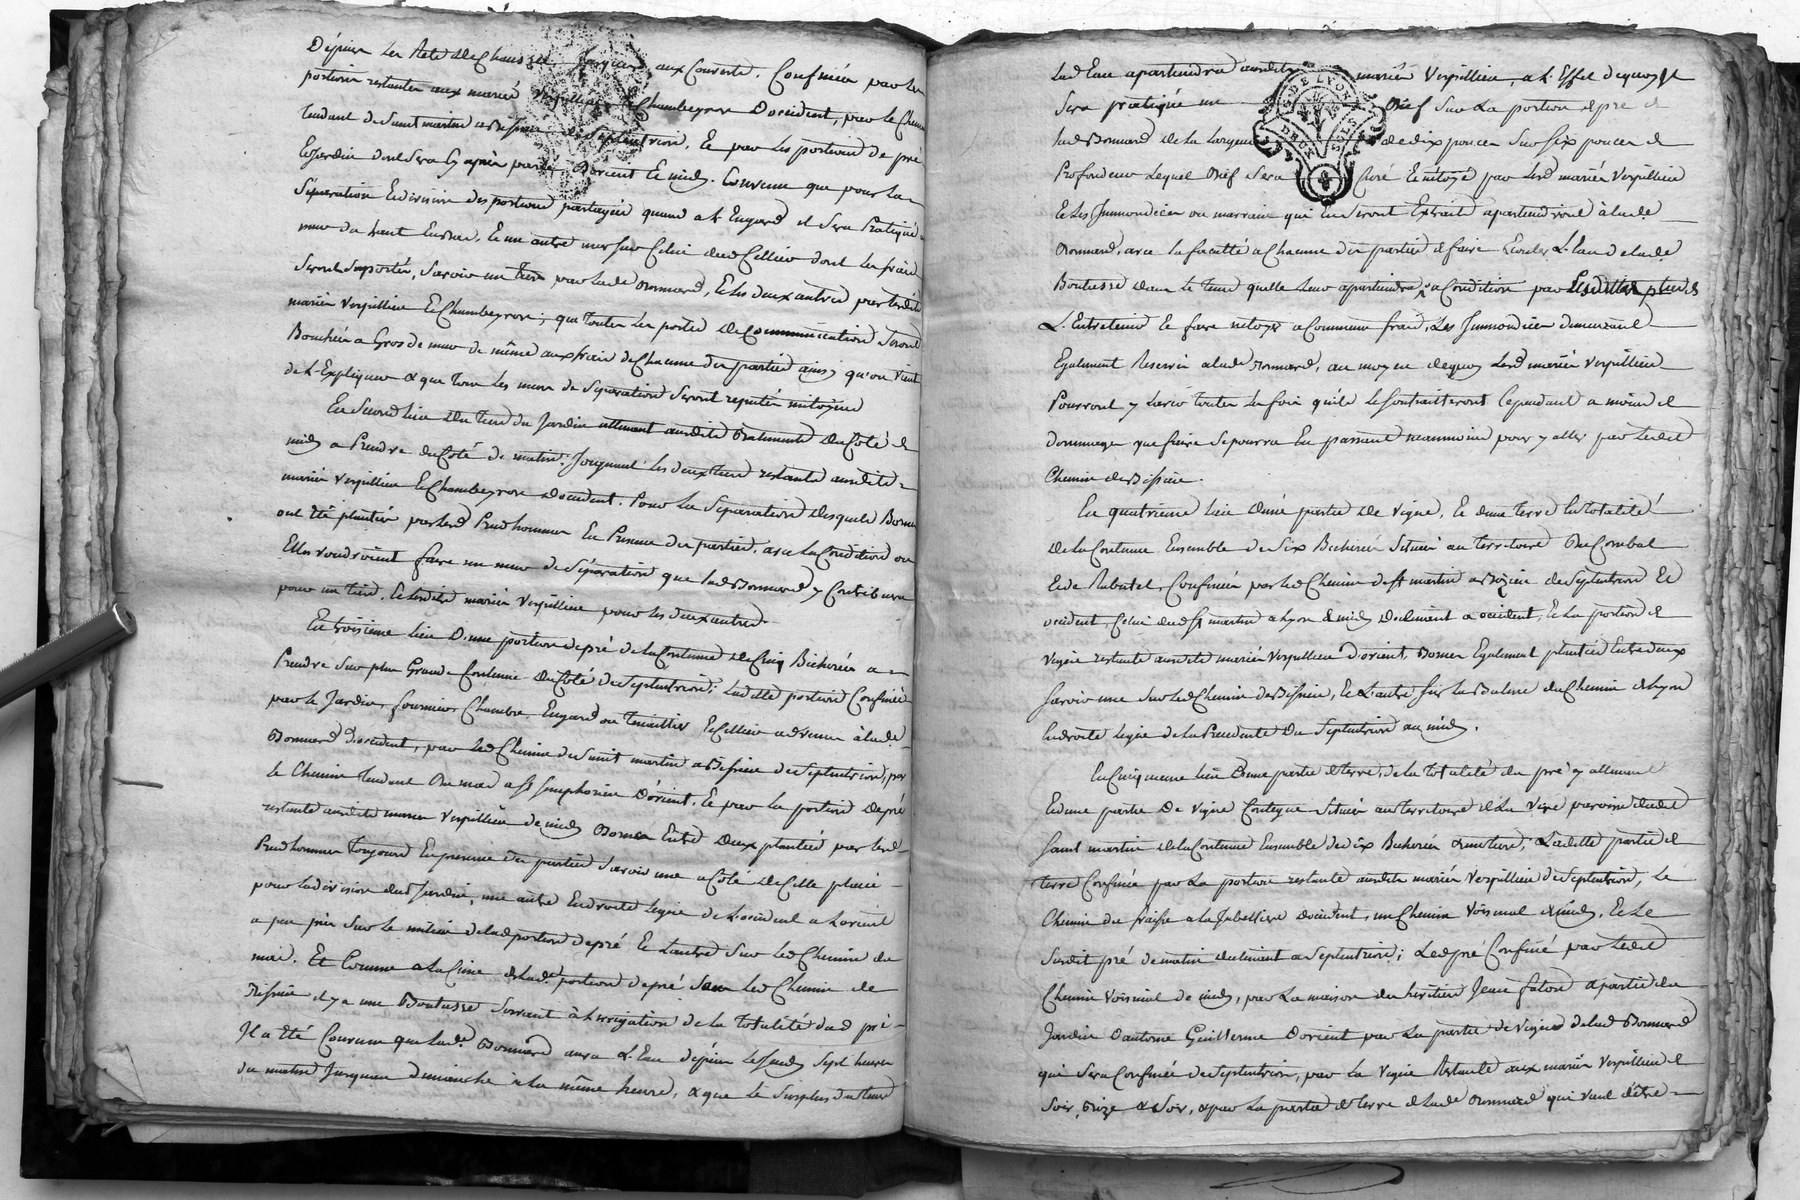 Dépuis les Rets de Chaussée jusques aux Couverts. Confinée par les
portions restantes aux mariés Verpillieu & Chambeyron Doccident, par le Chemin
tendant de Saint martin a Bissieu de Septentrion, Et par les portions de pré
Et Jardin dont Sera Cy après parlé Dorient Et midy. Convenu que pour la
Séparation Et division des portions partagées quand a L'Engard il Sera Pratiqué
mur du haut En bas, Et un autre mur sur Celui dud Cellier dont les frais
Seront Suportés, Savoir un tiers par lade Bonnard, Et les deux autres par lesdits
mariés Verpillieu Et Chambeyron; que toutes les portes de Communication Seront
Bouchées a Gros de mur de même aux frais de Chacune des parties ainsy qu'on vient
de L'Expliquer & que tous les murs de Séparation Seront réputés mitoyens
En Second lieu Du tiers du Jardin attenant ausdits Batiments du Coté de
midy a Prendre du Coté de matin; Joignant les deux tiers restants ausdits
mariés Verpillieu Et Chambeyron Doccident. Pour la Séparation desquels Bornes
ont Été plantées par lesd Prudhommes En Présence des parties, avec la Condition ou
Elles voudroient faire un mur de Séparation que lad Bonnard y Contribuera
pour un tiers, Et lesdits mariés Verpillieu pour les deux autres.
En troisieme lieu D'une portion de pré de la Contenue de Cinq Bicherées a
Prendre Sur plus Grande Contenue du Coté de Septentrion; Ladite portion Confinée
par le Jardin, fournier, Chambre, Engard ou tenaillier Et Cellier advenus à lade
Bonnard Doccident, par led Chemin de Saint martin a Bissieu de Septentrion, par
le Chemin tendant Du mas a St Simphorien Dorient, Et par la portion de pré
restante ausdits mariés Verpillieu de midy Bornes Entre Deux plantées par lesd
Prudhommes toujours En présence des parties Savoir une a Coté de Celle placée
pour la division dud Jardin, une autre En droite ligne de L'occident a Lorient
a peu près Sur le milieu de lad portion de pré Et L'autre Sur led Chemin du
mas. Et Comme a la Cime de lade portion de pré Sous led Chemin de
Bissieu il y a une Boutasse Servant à L'irrigation de la totalité dud pré
Il a Été Convenu que lade Bonnard aura L'Eau depuis le Jeudy Sept heures
du matin Jusques au Dimanche à la même heure, & que le Surplus du tems
Lad Eau apartiendra ausdits mariés Verpillieu, a L'Effet de quoy il
Sera pratiqué un Bief Sur La portion de pré de
lad Bonnard de la Largeur de dix pouces Sur Six pouces de
Profondeur Lequel Bief Sera Curé Et nétoyé par lesd mariés Verpillieu
Et les Immondices ou marrain qui En Seront Extraits apartiendront à lade
Bonnard, avec la faculté a Chacune des parties de faire Ecouler L'Eau de lade
Boutasse dans le tems quelle leur apartiendra, a Condition par Lesdites parties
L'Entretenir Et faire nétoyer a Commun frais, Les Immondices demeurant
Egalement Réservées a lade Bonnard, au moyen de quoy lesd mariés Verpillieu
Pourront y laver toutes les fois qu'ils le Souhaitteront Cependant a moins de
dommage que faire Se pourra En passant néanmoins pour y aller par ledit
Chemin de Bissieu.
En quatrieme lieu D'une partie de Vigne, Et d'une terre En totalité
De la Contenue Ensemble de Six Bicherées Située au territoire Du Combat
Et de Rabutet, Confinée par led Chemin de St martin a Bissieu de Septentrion Et
occident, Celui dud St martin a Lyon de midy Declinant a occident, Et La portion de
vigne restante ausdits mariés Verpillieu Dorient, Bornes Egalement plantées Entre deux
Savoir une Sur led Chemin de Bissieu, Et L'autre Sur la Balme du Chemin de Lyon
En droite ligne de la Précédente Du Septentrion au midy.
En Cinquieme lieu D'une partie de terre, de la totalité du pré y attenant
Et d'une partie De vigne Contigue Située au territoire de La Vire paroisse dudit
Saint martin de la Contenue Ensemble de dix Bicherées & mesure; Ladite partie de
terre Confinée par La portion restante ausdits mariés Verpillieu de Septentrion, Le
Chemin du fraisse a la Jabetiere Doccident, un Chemin Voisinal de midy, Et Le
Susdit pré de matin declinant a Septentrion; Led pré Confiné par ledit
Chemin Voisinal de midy, par La maison des héritiers Jean faton & partie du
Jardin D'antoine Guillerme Dorient par La partie de Vigne de lad Bonnard
qui Sera Confinée de Septentrion, par La Vigne Restante aux mariés Verpillieu de
Soir, Bize & Soir, & par La partie de terre de lade Bonnard qui vient d'être
G. DE LYON
DEUX SOLS